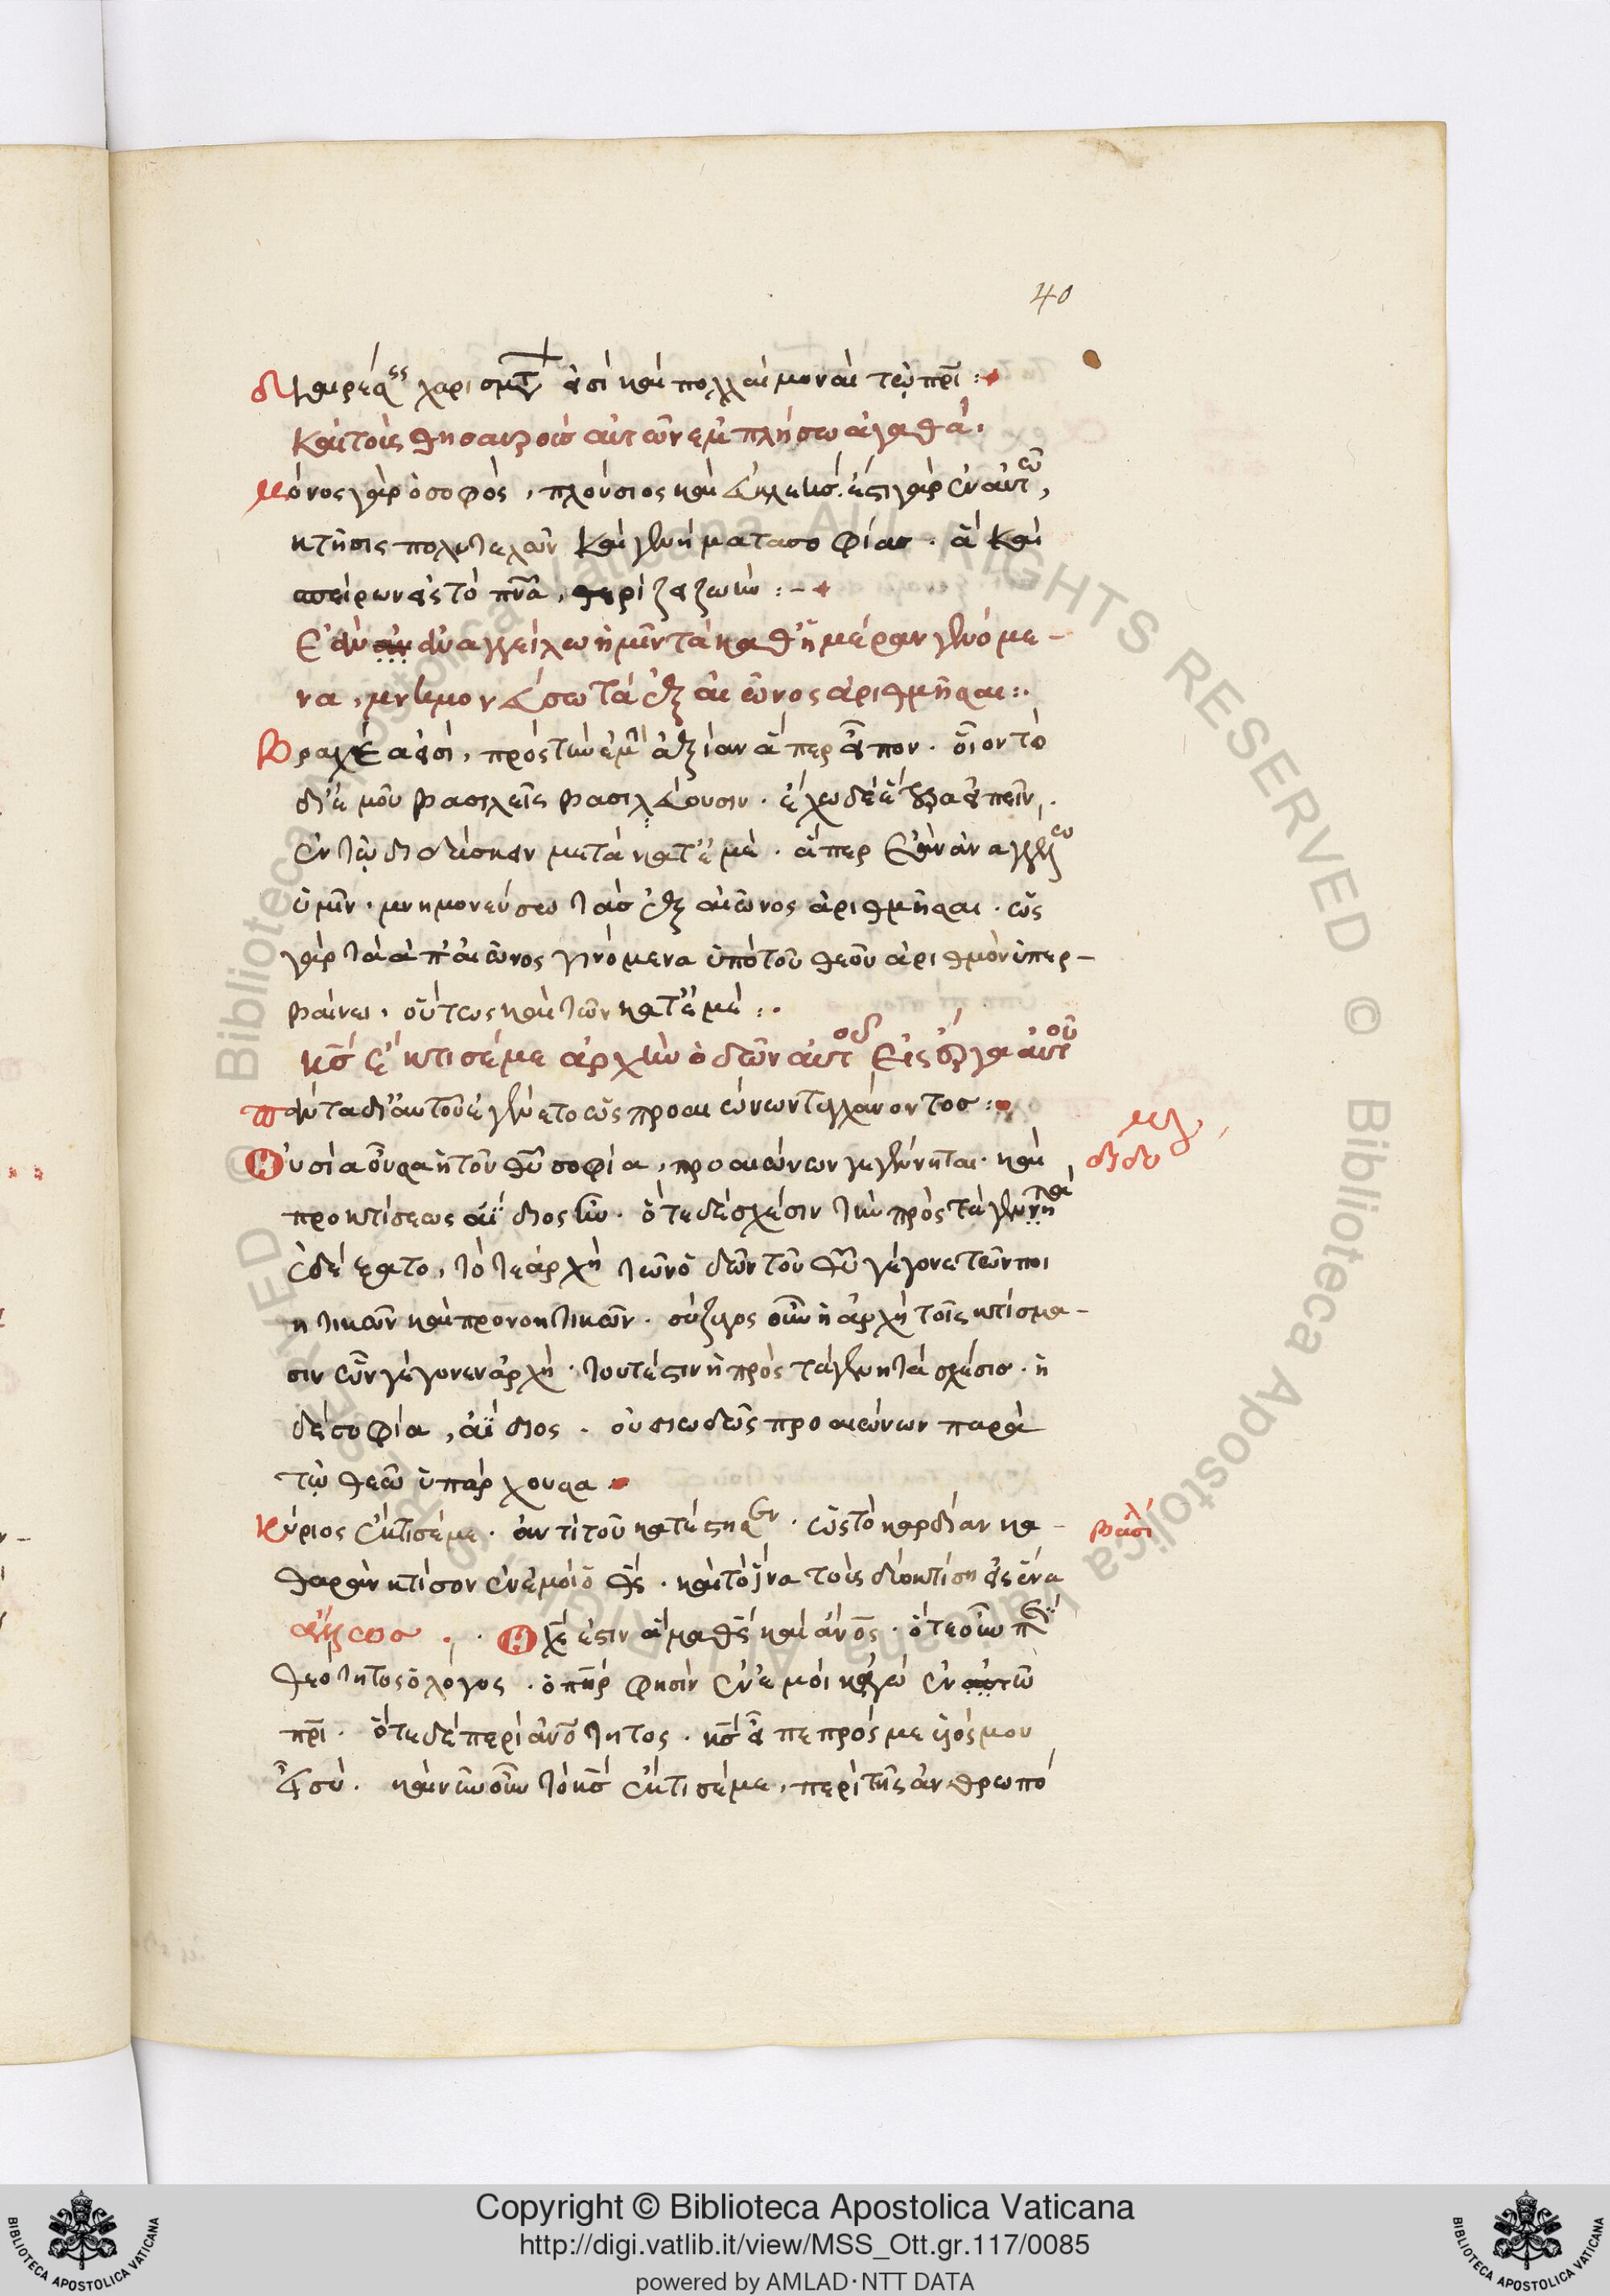 40
διαιρέσεις χαρισμάτων εἰσὶ καὶ πολλαὶ μοναὶ τῷ πρι :
Καὶ τοὺς θησαυροὺς αὐτῶν ἐμπλήσω ἀγαθῶν.
μόνος γὰρ ὁ σοφὸς, πλούσιος καὶ εὐκλεής. ἔστι γὰρ ἐν αὐτῶ,
κτῆσις πολυτελῶν καὶ γεννήματα σοφίας. ἃ καὶ
σπείρων εἰς τὸ πνα, θερίζει ζωήν :-
Ἐὰν ἀναγγείλω ἡμῖν τὰ καθ' ἡμέραν γενόμε-
να, μνημονεύσω τὰ ἐξ αἰῶνος ἀριθμῆσαι :.
Βραχέα εἰσὶ, πρὸς τὴν ἐμὴν ἀξίαν ἅπερ εἶπον. οἷον τὸ
δι' ἐμοῦ βασιλεῖς βασιλεύουσιν. ἔχω δὲ ἕτερα εἰπεῖν,
ἐν τῷ διδάσκειν με τὰ κατ' ἐμέ. ἅπερ ἐὰν ἀναγγείλω
ὑμῖν. μνημονεύσω τὰς ἐξ αἰῶνος ἀριθμῆσαι. ὡς
γὰρ τὰ ἀπ' αἰῶνος γινόμενα ὑπὸ τοῦ θεοῦ ἀριθμὸν ὑπερ-
βαίνει, οὕτως καὶ τῶν κατ' ἐμέ :.
κς ἔκτισέ με ἀρχὴν ὁδῶν αὐτοῦ εἰς ἔργα αὐτοῦ
πάντα δι' αὐτοῦ ἐγένετο ὡς προαιώνων τυγχάνοντος :
Οὐσία οὖσα ἡ τοῦ θυ σοφία, προαιώνων γεγέννηται. καὶ
διδύ
προ κτίσεως ἀΐδιος ἦν. ὅτε δὲ σχέσιν τὴν πρὸς τὰ γεννητὰ
ἐδέξατο, τότε ἀρχὴ τῶν ὁδῶν τοῦ θυ γέγονε τῶν ποι
ητικῶν καὶ προνοητικῶν. σύζυγος οὖν ἡ ἀρχὴ τοῖς κτίσμα-
σιν ὧν γέγονεν ἀρχή. τουτέστιν ἡ πρὸς τὰ γεννητὰ σχέσις. ἡ
δὲ σοφία, ἀΐδιος. οὐσιωδῶς προαιώνων παρὰ
τῷ θεῶ ὑπάρχουσα
κύριος ἔκτισέ με. ἀντὶ τοῦ κατέστησεν. ὡς τὸ καρδίαν κα-
βασι
θαρὰν κτίσον ἐν ἐμοὶ ὁ θς. καὶ τὸ ἵνα τοὺς δύο κτίση εἰς ἕνα
Ὁ χς ἐστιν ἅμα θς καὶ ἄνος. ὅτε οὖν περὶ
θεότητος ὁ λόγος. ὁ πηρ φησὶν ἐν ἐμοὶ κἀγὼ ἐν τῶ
πρι. ὅτε δὲ περὶ ἀνότητος. κς εἶπε πρός με υἱός μου
εἶ σύ. καὶ νῦν οὖν τὸ κς ἔκτισέ με, περὶ τῆς ἀνθρωπό
Copyright © Biblioteca Apostolica Vaticana
http://digi.vatlib.it/view/MSS_Ott.gr.117/0085
powered by AMLAD·NTT DATA
BIBLIOTECA APOSTOLICA VATICANA
BIBLIOTECA APOSTOLICA VATICANA